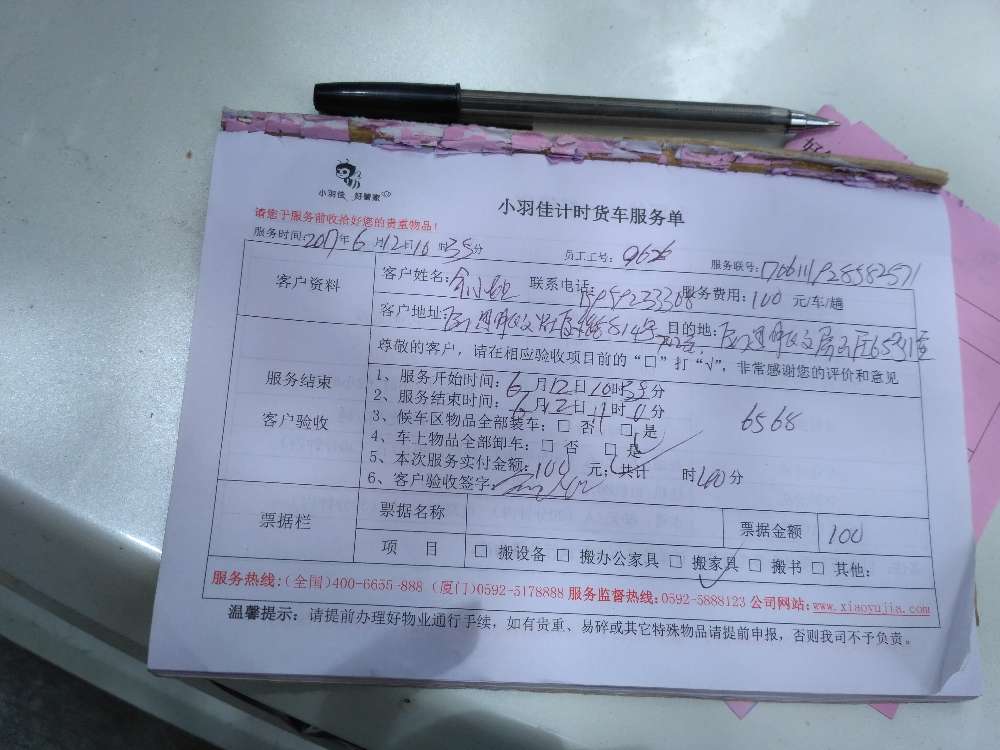 小羽佳 好管家
小羽佳计时货车服务单
请您于服务前收拾好您的贵重物品！
服务时间：2017年6月12日16时35分 员工工号：0626 服务联号：
客户资料 客户姓名： 联系电话： 服务费用：100元/车/趟
客户地址： 目的地：
尊敬的客户，请在相应验收项目前的“□”打“√”，非常感谢您的评价和意见
服务结束
客户验收
1、服务开始时间：6月12日16时35分
2、服务结束时间：6月12日 时 分 6568
3、候车区物品全部装车：□ 否 □ 是
4、车上物品全部卸车：□ 否 □ 是
5、本次服务实付金额：100元；共计 时 分
6、客户验收签字：
票据栏 票据名称 票据金额 100
项 目 □ 搬设备 □ 搬办公家具 □ 搬家具 □ 搬书 □ 其他：
服务热线：（全国）400-6655-888（厦门）0592-5178888 服务监督热线：0592-5888123 公司网站：www.xiaoyujia.com
温馨提示：请提前办理好物业通行手续，如有贵重、易碎或其它特殊物品请提前申报，否则我司不予负责。